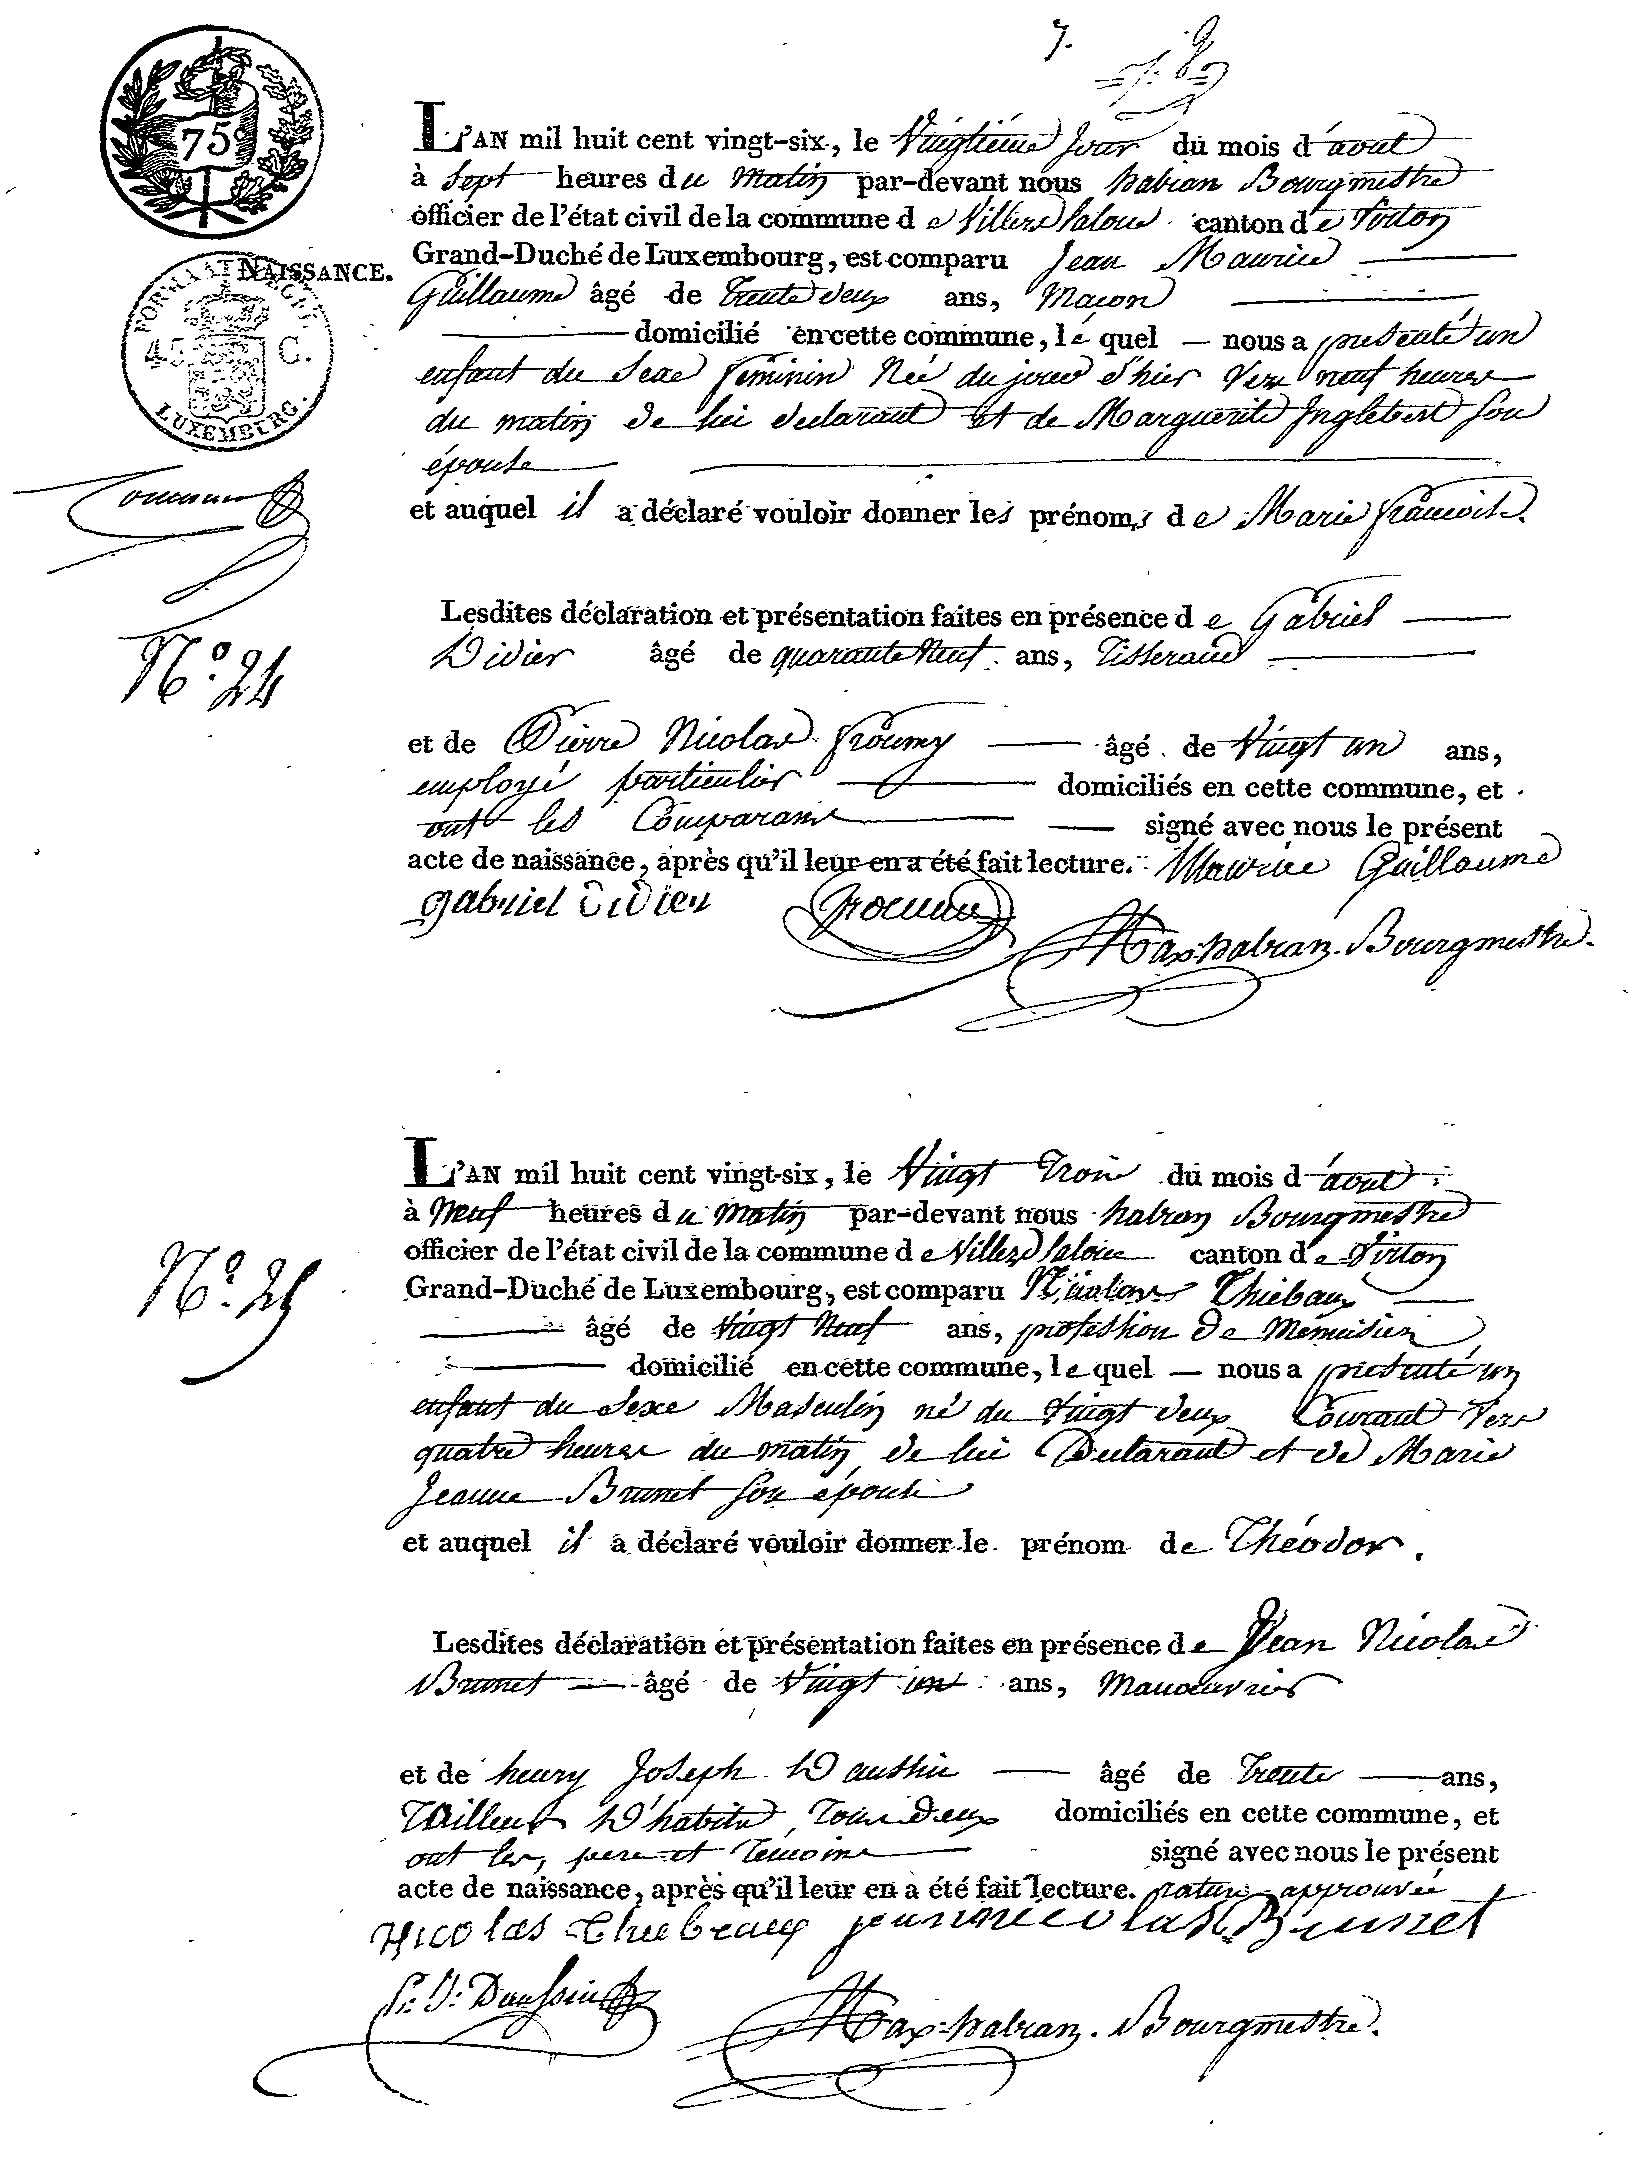 7.
75c
NAISSANCE.
45 C.
LUXEMBURG.
L'AN mil huit cent vingt-six, le Vingtième Jour du mois d'aout
à Sept heures du Matin par-devant nous habran Bourgmestre
officier de l'état civil de la commune de Villers Laloue canton de Virton
Grand-Duché de Luxembourg, est comparu Jean Maurice
Guillaume âgé de Trente deux ans, Maçon
domicilié en cette commune, le quel nous a presenté un
enfant du Sexe feminin Née du jour d'hier Vers neuf heures
du matin de lui declarant et de Marguerite Inglebert Son
épouse
et auquel il a déclaré vouloir donner les prénoms de Marie françoise.
N° 24
Lesdites déclaration et présentation faites en présence de Gabriel
Didier âgé de quarante Neuf ans, Tisserand
et de Pierre Nicolas froumy âgé de Vingt un ans,
employé particulier domiciliés en cette commune, et
ont les Comparans signé avec nous le présent
acte de naissance, après qu'il leur en a été fait lecture. Maurice Guillaume
gabriel Didier
Max habran Bourgmestre.
L'AN mil huit cent vingt-six, le Vingt Trois du mois d'aout
à Neuf heures du Matin par-devant nous habran Bourgmestre
officier de l'état civil de la commune de Villers Laloue canton de Virton
N° 25
Grand-Duché de Luxembourg, est comparu Nicolas Thiebaux
âgé de Vingt Neuf ans, profession de Menuisier
domicilié en cette commune, le quel nous a presenté un
enfant du Sexe Masculin né du Vingt deux Courant Vers
quatre heures du matin de lui Declarant et de Marie
Jeanne Brunet Son épouse
et auquel il a déclaré vouloir donner le prénom de Théodor.
Lesdites déclaration et présentation faites en présence de Jean Nicolas
Brunet âgé de Vingt un ans, Manoeuvrier
et de henry Joseph Daussin âgé de Trente ans,
Tailleur D'habits Tous deux domiciliés en cette commune, et
ont les, pere et Temoins signé avec nous le présent
acte de naissance, après qu'il leur en a été fait lecture. rature approuvée
Nicolas Thiebeaux jean nicolas Brunet
Daussin
Max habran. Bourgmestre.